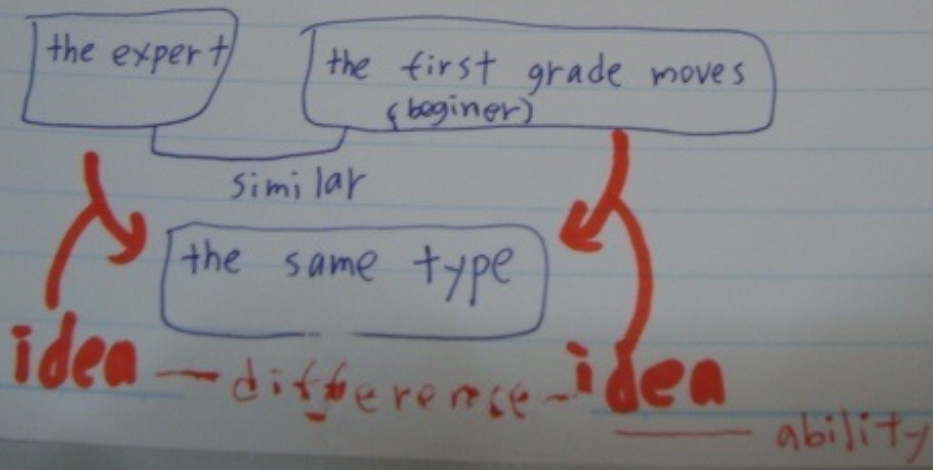 the expert
the first grade moves
(beginer)
similar
the same type
idea — difference — idea
ability